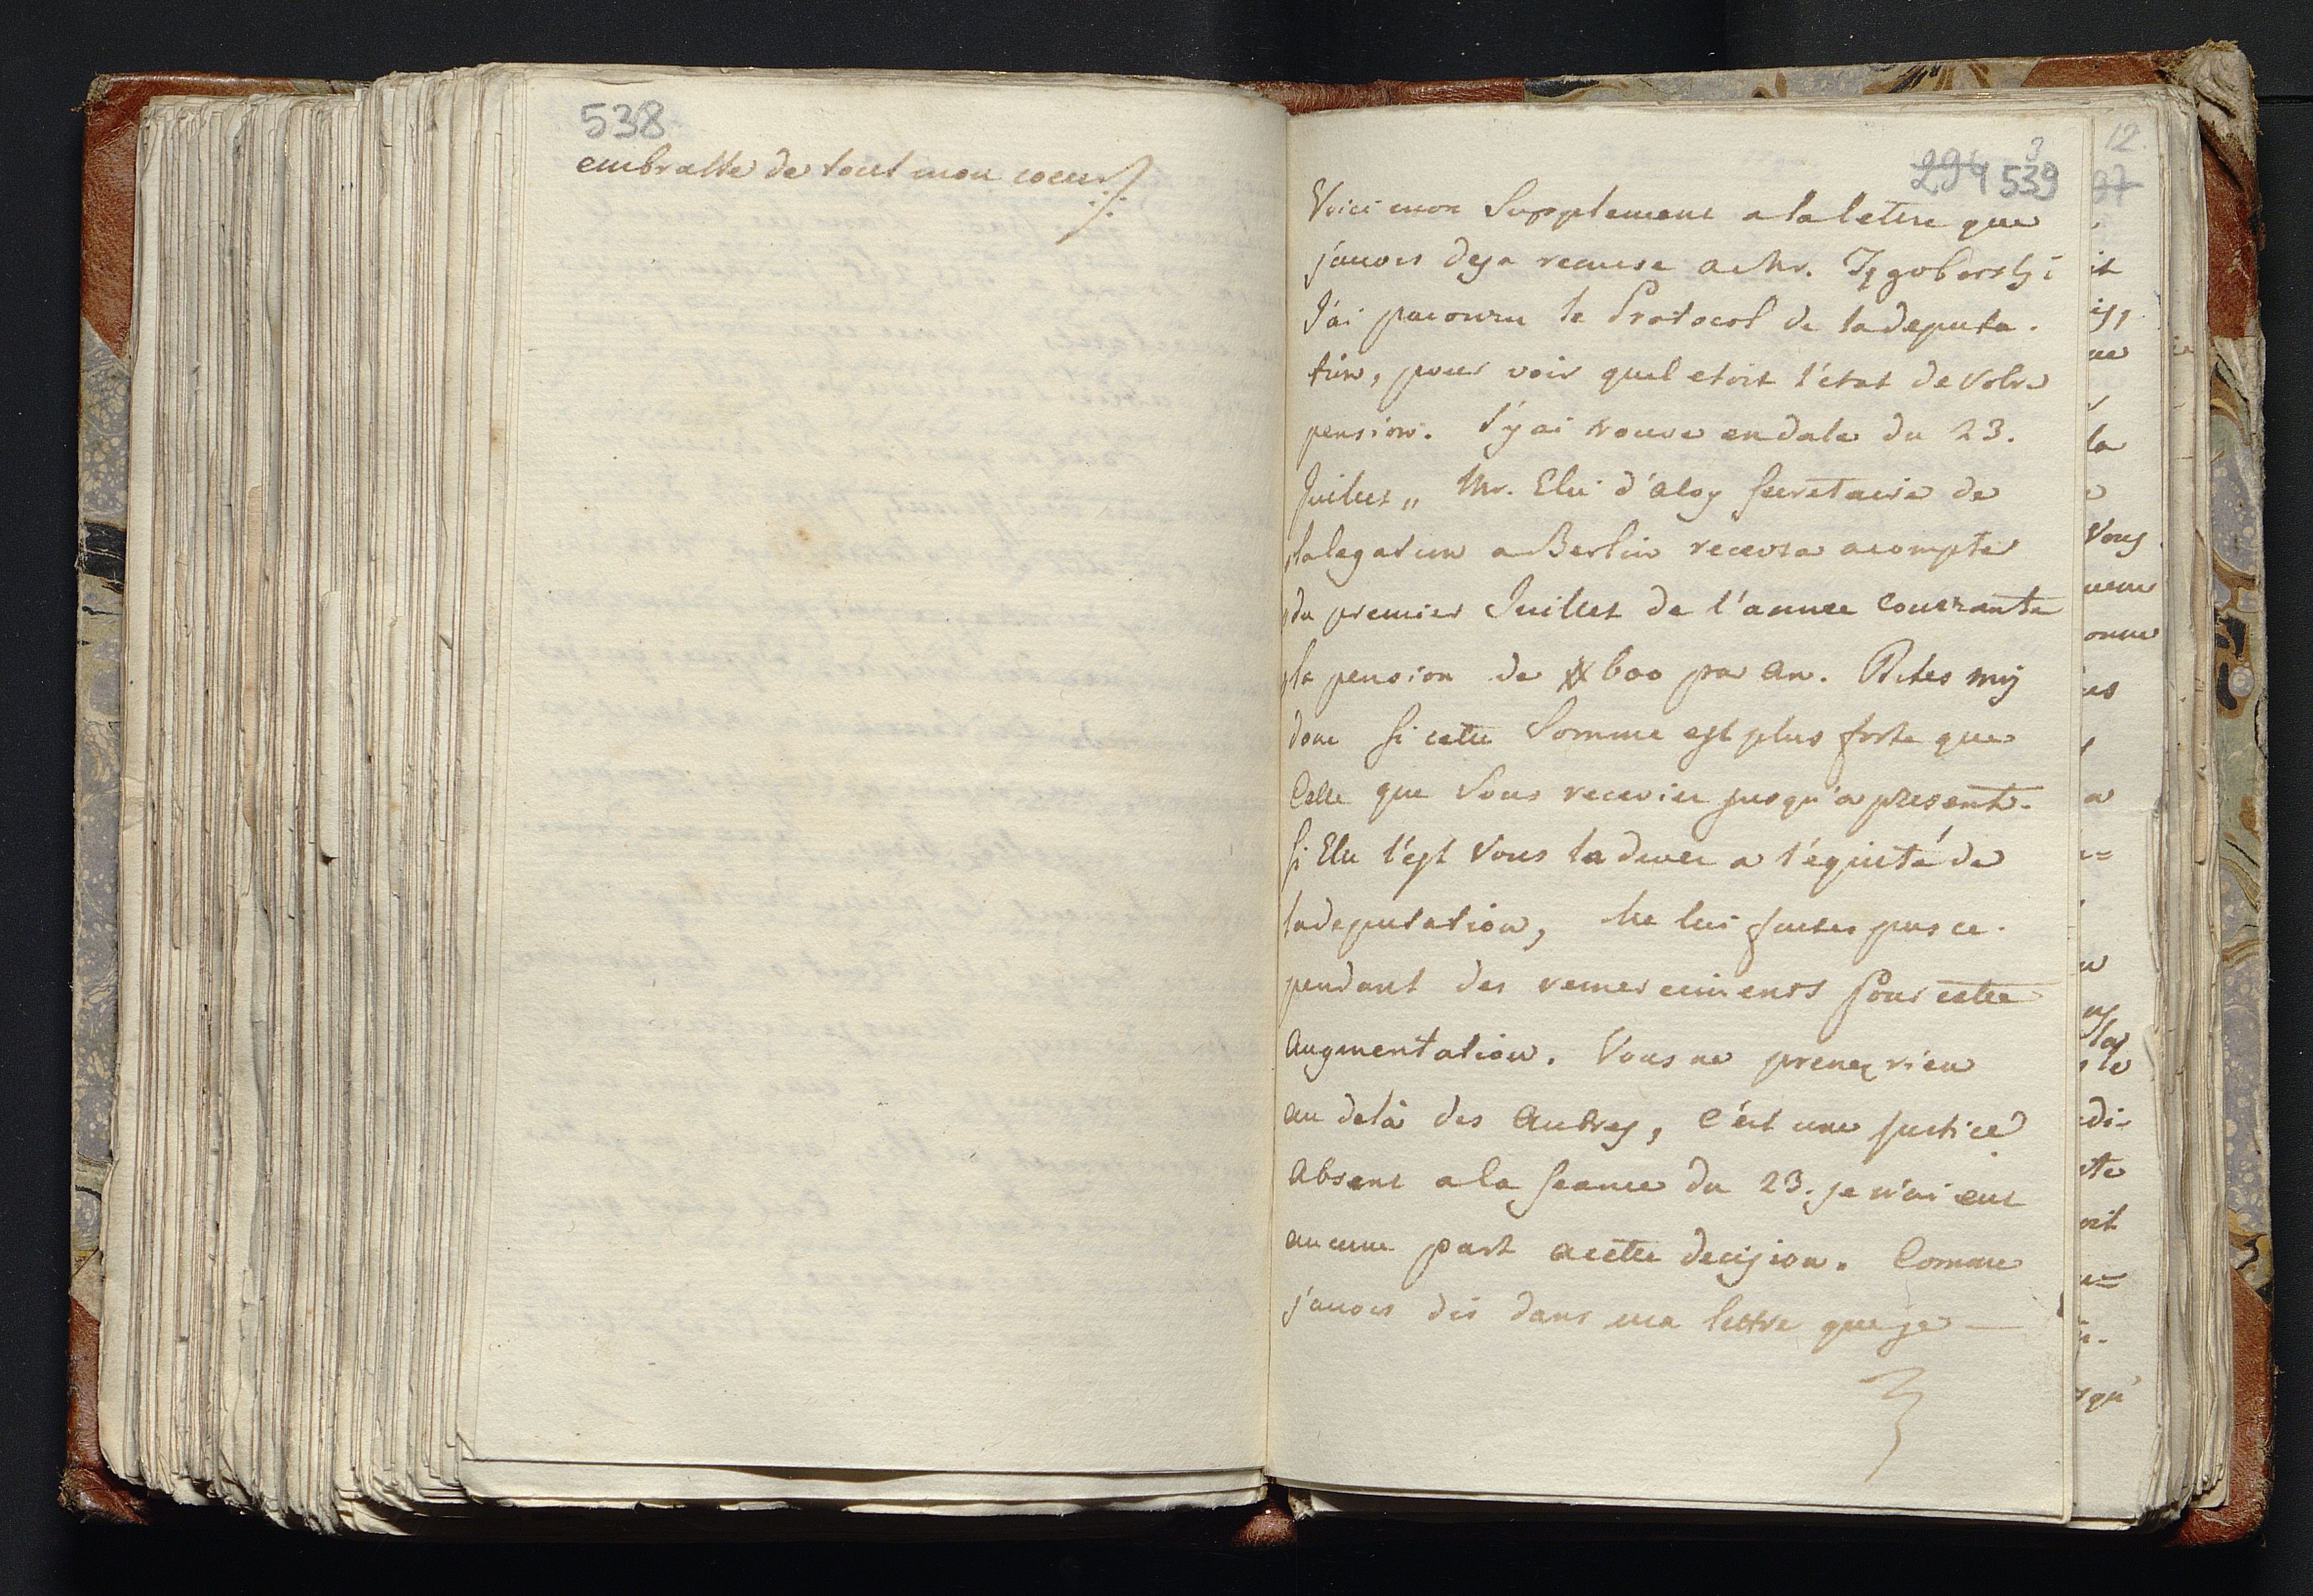 538
embrasse de tout mon coeur
294 539
3
Voici mon Supplement a la lettre que
j'avois deja remise a Mr. Tęgoborski
J'ai parcouru le Protocol de la deputa-
tion, pour voir quel etoit l'état de Votre
pension. J'y ai trouve en date du 23.
Juillet „ Mr. Elie d'Aloy Secretaire de
„la legation a Berlin recevra a compter
„du premier Juillet de l'annee courante
„la pension de # 600 par an. Dites moi
donc si cette Somme est plus forte que
Celle que Vous receviez jusqu'a present.
Si Elle l'est Vous la devez a l'équité de
la deputation, Ne lui faites pas ce-
pendant des remerciments pour cette
Augmentation. Vous ne prenez rien
au delà des Autres, c'est une justice
Absent a la seance du 23. je n'ai eut
aucune part a cette decision. Comme
j'avois dis dans ma lettre que je —
12.
97
it
ue
la
Vous
onne
a
le
edi-
ite
oit
squ'